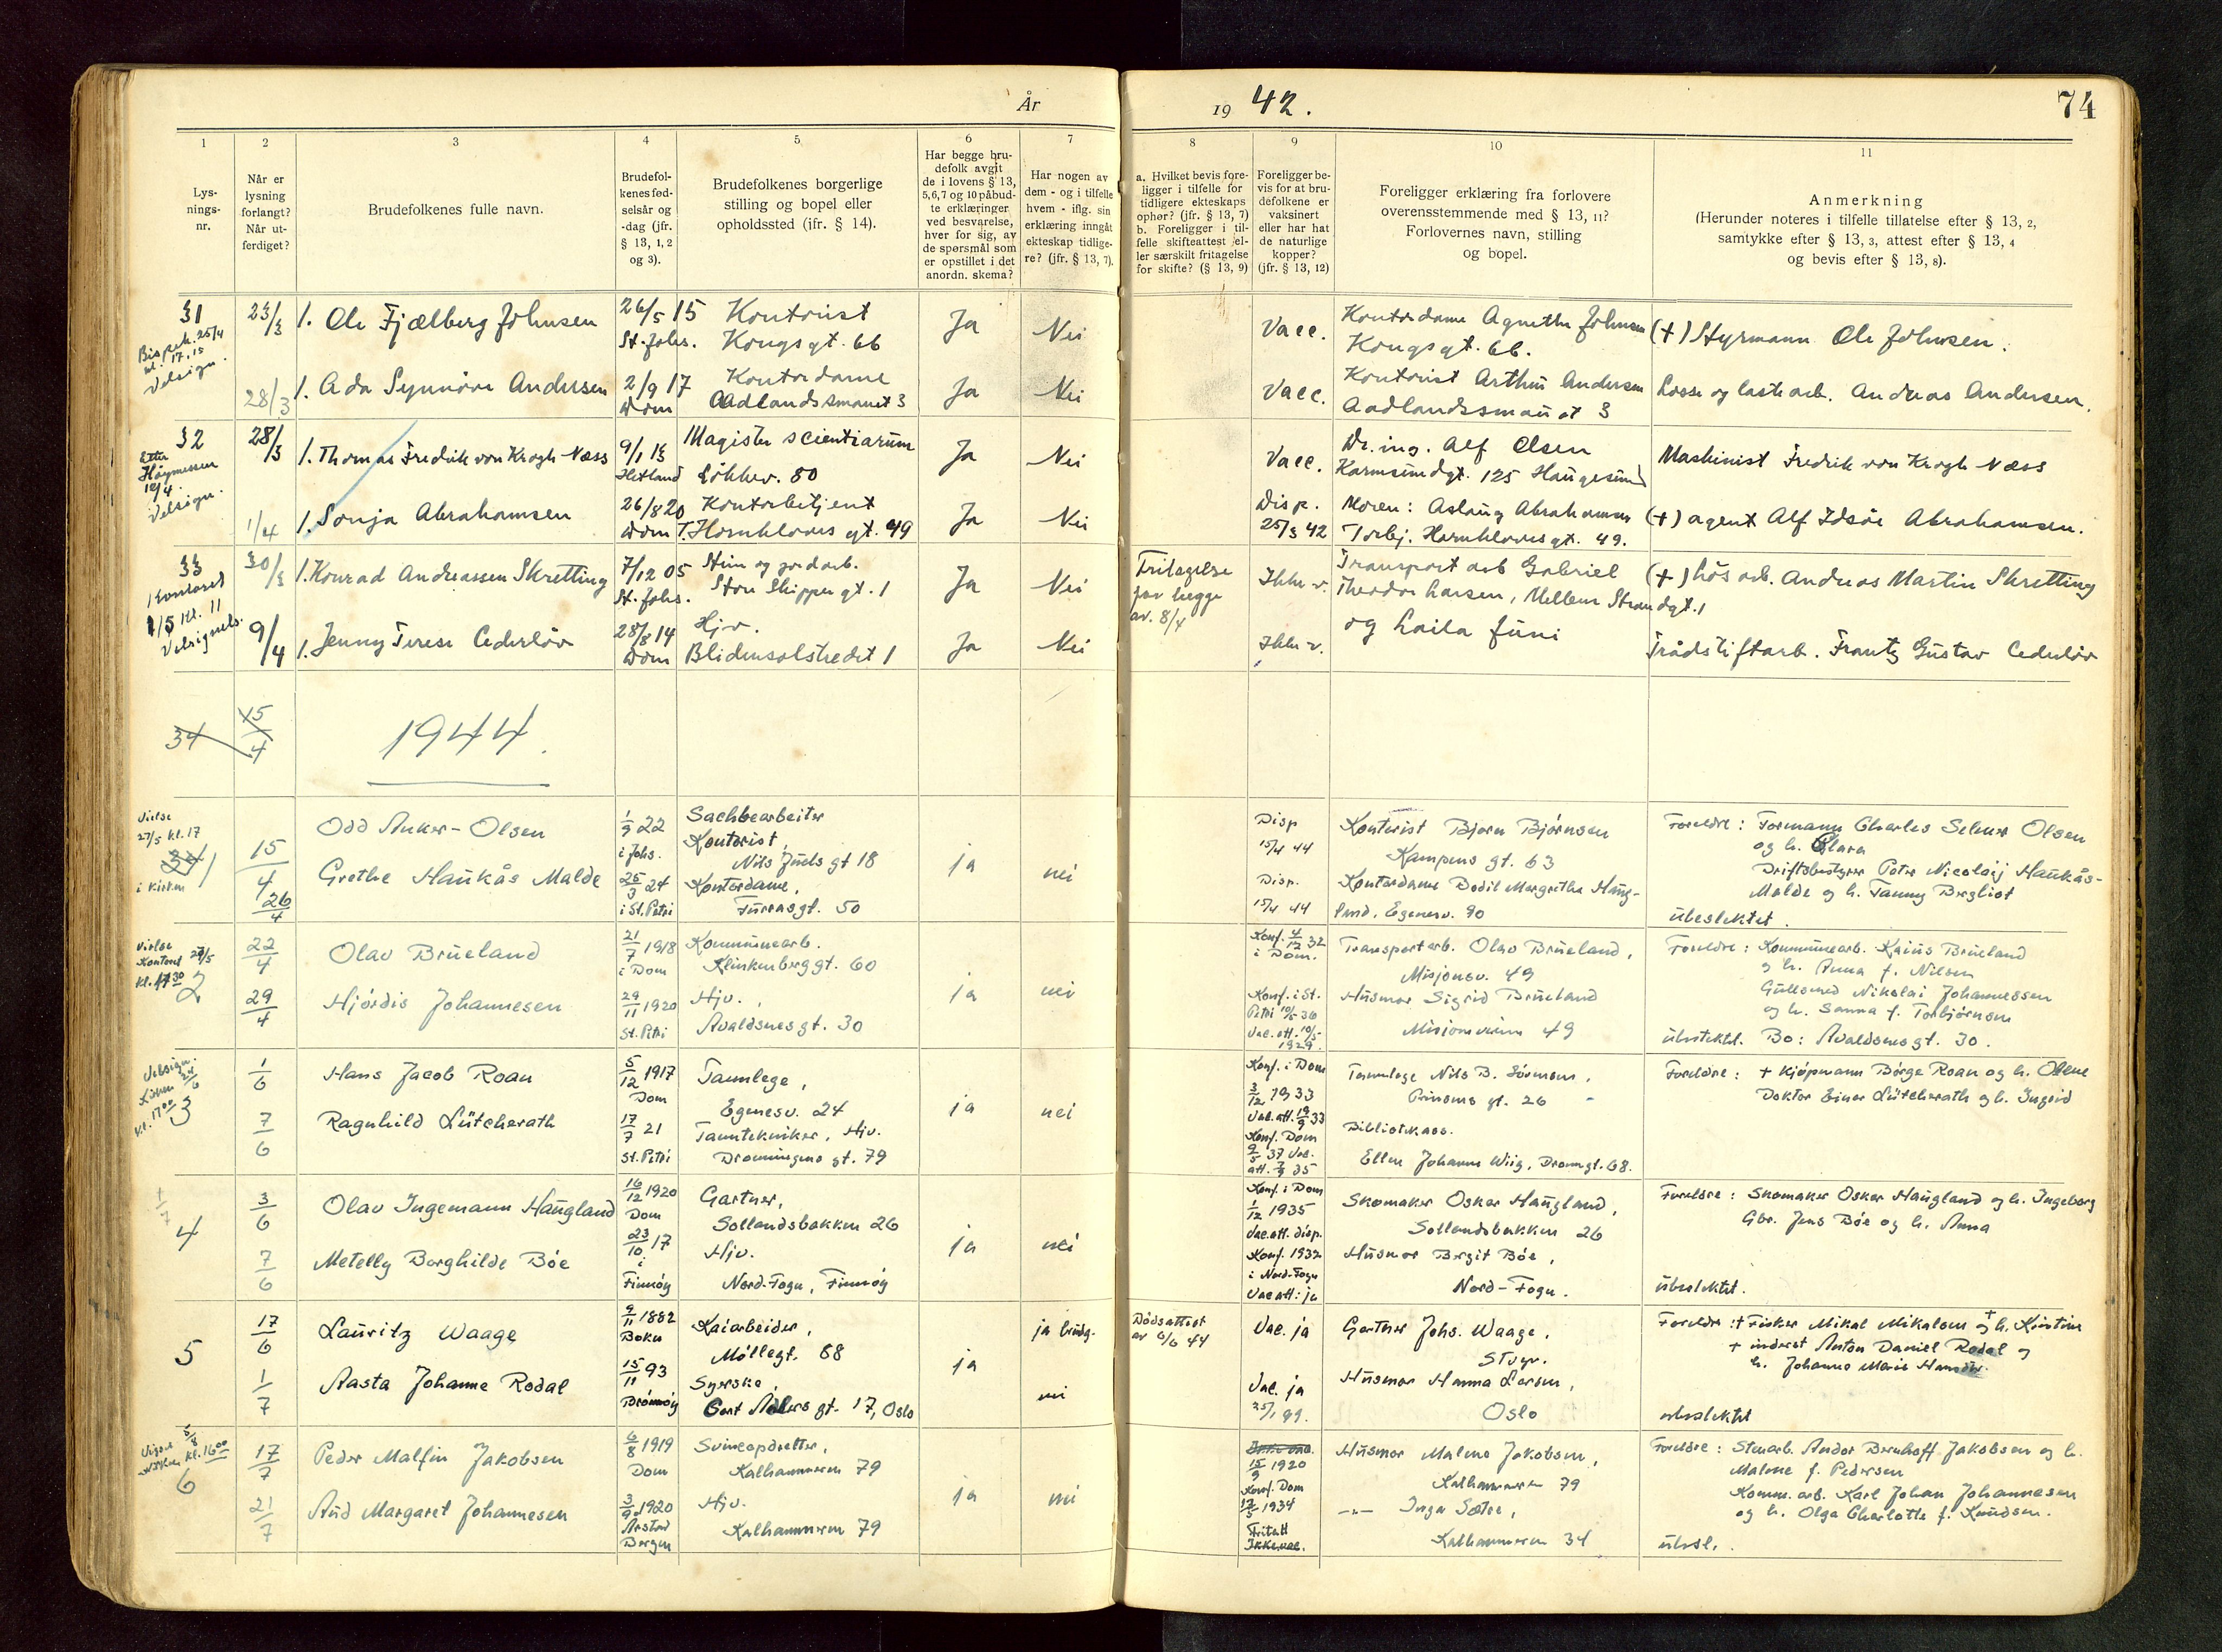 År
19 42.
74
1
2
3
4
5
6
7
8
9
10
11
Lys-
nings-
nr.
Når er
lysning
forlangt?
Når ut-
ferdiget?
Brudefolkenes fulle navn.
Brudefol-
kenes fød-
selsår og
-dag (jfr.
§ 13, 1, 2
og 3).
Brudefolkenes borgerlige
stilling og bopel eller
opholdssted (ifr. § 14).
Har begge bru-
defolk avgit
de i lovens § 13,
5,6,7 og 10 påbud-
te erklæringer
ved besvarelse,
hver for sig, av
de spørsmål som
er opstillet i det
anordn. skema?
Har nogen av
dem - og i tilfelle
hvem - iflg. sin
erklæring inngåt
ekteskap tidlige-
re? (jfr. § 13, 7).
a. Hvilket bevis fore-
ligger i tilfelle for
tidligere ekteskaps
ophør? (jfr. § 13, 7)
b. Foreligger i til-
felle skifteattest el-
ler særskilt fritagelse
for skifte? (§ 13, 9)
Foreligger be-
vis for at bru-
defolkene er
vaksinert
eller har hat
de naturlige
kopper?
(jfr. § 13, 12)
Foreligger erklæring fra forlovere
overensstemmende med § 13, 11?
Forlovernes navn, stilling
og bopel.
Anmerkning
(Herunder noteres i tilfelle tillatelse efter § 13, 2,
samtykke efter § 13, 3, attest efter § 13, 4
og bevis efter § 13, 8).
31
Bispek. 25/4
kl. 17.15
Velsign.
23/3
28/3
1. Ole Fjælberg Johnsen
26/5 15
St. Johs.
Kontorist
Kongsgt. 66
Ja
Nei
Vacc.
Kontordame Agnethe Johnsen
Kongsgt. 66.
(+) Styrmann Ole Johnsen.
1. Ada Synnøve Andersen
2/9 17
Dom
Kontordame
Aadlandssmauet 3
Ja
Nei
Vacc.
Kontorist Arthur Andersen
Aadlandssmauet 3
Losse og lastearb. Andreas Andersen.
32
Etter
Høymessen
12/4.
Velsign.
28/3
1/4
1. Thomas Fredrik von Krogh Næss
9/1 13
Hetland
Magister scientiarum
Løkkev. 80
Ja
Nei
Vacc.
Dr. ing. Alf Olsen
Karmsundgt. 125 Haugesund
Maskinist Fredrik von Krogh Næss
1. Sonja Abrahamsen
26/8 20
Dom
Kontorbetjent
T. Hornkloves gt. 49
Ja
Nei
Disp.
25/3 42
Moren: Aslaug Abrahamsen
Torbj. Hornklovesgt. 49.
(+) agent Alf Idsøe Abrahamsen.
33
Kontoret
1/5 kl. 11
Velsignels.
30/3
9/4
1. Konrad Andreassen Skretting
7/12 05
St. Johs.
Sten og jordarb.
Store Skippergt. 1
Ja
Nei
Fritagelse
for begge
av. 8/4
Ikke v.
Transportarb Gabriel
Theodor Larsen, Mellem Strandgt. 1
og Laila Juni
(+) løs arb. Andreas Martin Skretting
1. Jenny Terese Cederløv
28/8 14
Dom
Hjv.
Blidensolstredet 1
Ja
Nei
Ikke v.
Trådstiftarb. Frantz Gustav Cederløv
34
15/4
1944.
Vielse
27/5 kl. 17
34 1
i kirken
15/4
26/4
Odd Anker-Olsen
1/9 22
i Johs.
Sachbearbeiter
Kontorist,
Nils Juels gt 18
ja
nei
Disp
15/4 44
Kontorist Bjørn Bjørnsen
Kampens gt. 63
Foreldre: Formann Charles Selmer Olsen
og h. Clara
Grethe Haukås Malde
25/3 24
i St. Petri
Kontordame,
Furrasgt. 50
Disp.
15/4 44
Kontordame Bodil Margrethe Haug-
land, Egenesv. 90
Driftsbestyrer Peter Nicolaij Haukås-
Malde og h. Fanny Bergliot
ubeslektet.
Vielse
Kontoret 29/5
kl. 17 30
2
22/4
29/4
Olav Brueland
21/7 1918
i Dom
Kommunearb.
Klinkenberggt. 60
ja
nei
Konf. 4/12 32
i Dom.
Transportarb. Olav Brueland,
Misjonsv. 49
Foreldre: Kommunearb. Kaius Brueland
og h. Anna f. Nilsen
Hjørdis Johannesen
29/11 1920
St. Petri
Hjv.,
Avaldsnesgt. 30
Konf. i St.
Petri 10/5 36
Vac. att. 10/5-
1929.
Husmor Sigrid Brueland
Misjonsveien 49
Gullsmed Nikolai Johannessen
og h. Sanna f. Torbjørnsen
ubeslektet. Bo: Avaldsnesgt. 30.
Velsign.
Kirken 24/6
kl. 17 00
3
1/6
7/6
Hans Jacob Roan
5/12 1917
Dom
Tannlege,
Egenesv. 24
ja
nei
Konf. i Dom
3/12 1933
Vac. att. 19/9 33
Tannlege Nils B. Sørensen,
Prinsens gt. 26
Foreldre: + Kjøpmann Børge Roan og h. Oline
Doktor Einar Lütcherath og h. Ingrid
Ragnhild Lütcherath
17/7 21
St. Petri
Tanntekniker, Hjv.
Dronningens gt. 79
Konf. Dom
9/5 37 Vac.
att. 7/9 35
Bibliotekass.
Ellen Johanne Wiig, Dronngt. 68.
1/7
4
3/6
7/6
Olav Ingemann Haugland
16/12 1920
Dom
Gartner,
Sollandsbakken 26
ja
nei
Konf. i Dom
1/12 1935
Vac. att. disp.
Skomaker Oskar Haugland,
Sollandsbakken 26
Foreldre: Skomaker Oskar Haugland og h. Ingeborg
Gbr. Jens Bøe og h. Anna
Metelly Borghilde Bøe
23/10 17
i
Finnøy
Hjv.
Nord-Fogn, Finnøy
Konf. 1932
i Nord-Fogn
Vac att: ja
Husmor Bergit Bøe,
Nord-Fogn.
ubeslektet.
5
17/6
1/7
Lauritz Waage
9/11 1882
Bokn
Kaiarbeider,
Møllegt. 68
ja
ja brudg.
Dødsattest
av 6/6 44
Vac. ja
Gartner Johs. Waage,
Stvgr.
Foreldre: + Fisker Mikal Mikalsen og + h. Kirstine
+ inderst Anton Daniel Rødal og
h. Johanna Marie
Aasta Johanne Rødal
15/11 93
Brønnøy
Syerske,
Cort Adlers gt. 17, Oslo
nei
Vac. ja
25/1 99.
Husmor Hanna Larsen,
Oslo
ubeslektet
5/8
kl. 16 00
6
17/7
21/7
Peder Malfin Jakobsen
6/8 1919
Dom
Svineopdretter,
Kalhammeren 79
ja
nei
15/9 1920
Konf. Dom
Husmor Malene Jakobsen,
Kalhammeren 79
Foreldre: Stenarb. Andor Bernhoff Jakobsen og h.
Malene f. Pedersen
Aud Margaret Johannesen
3/9 1920
Årstad
Bergen
Hjv.
Kalhammeren 79
17/5 1934
Fritatt
Ikke vac.
-"- Inga Sætre,
Kalhammeren 34
Komm. arb. Karl Johan Johannesen
og h. Olga Charlotte f. Knudsen.
ubesl.